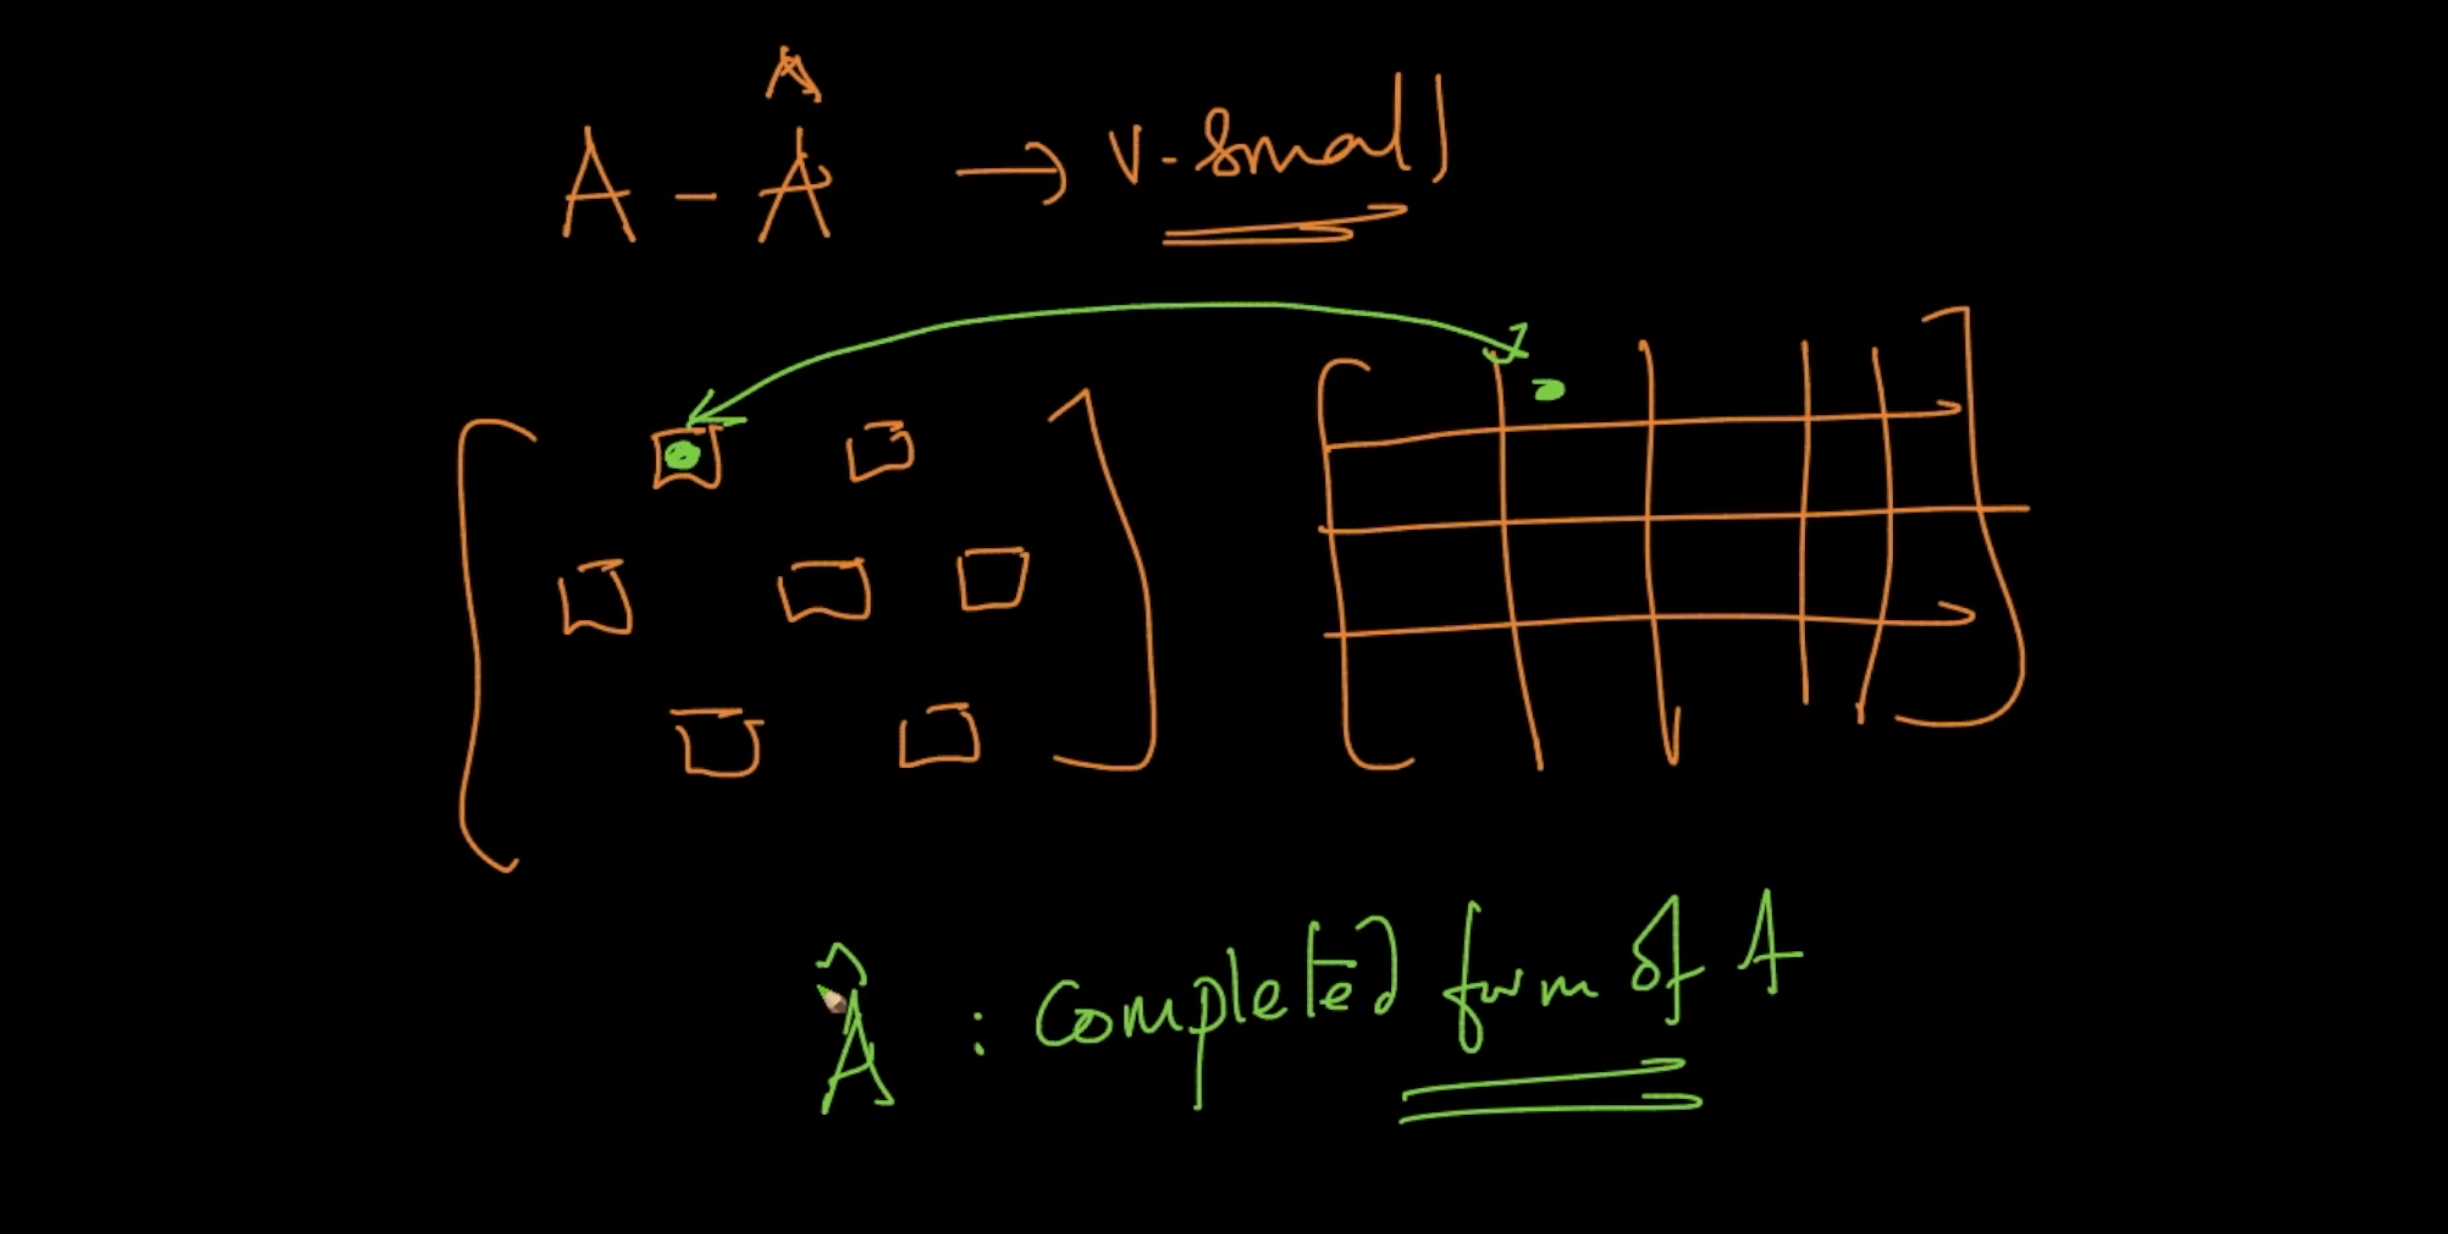 A - Â → v. small
Â : Completed form of A